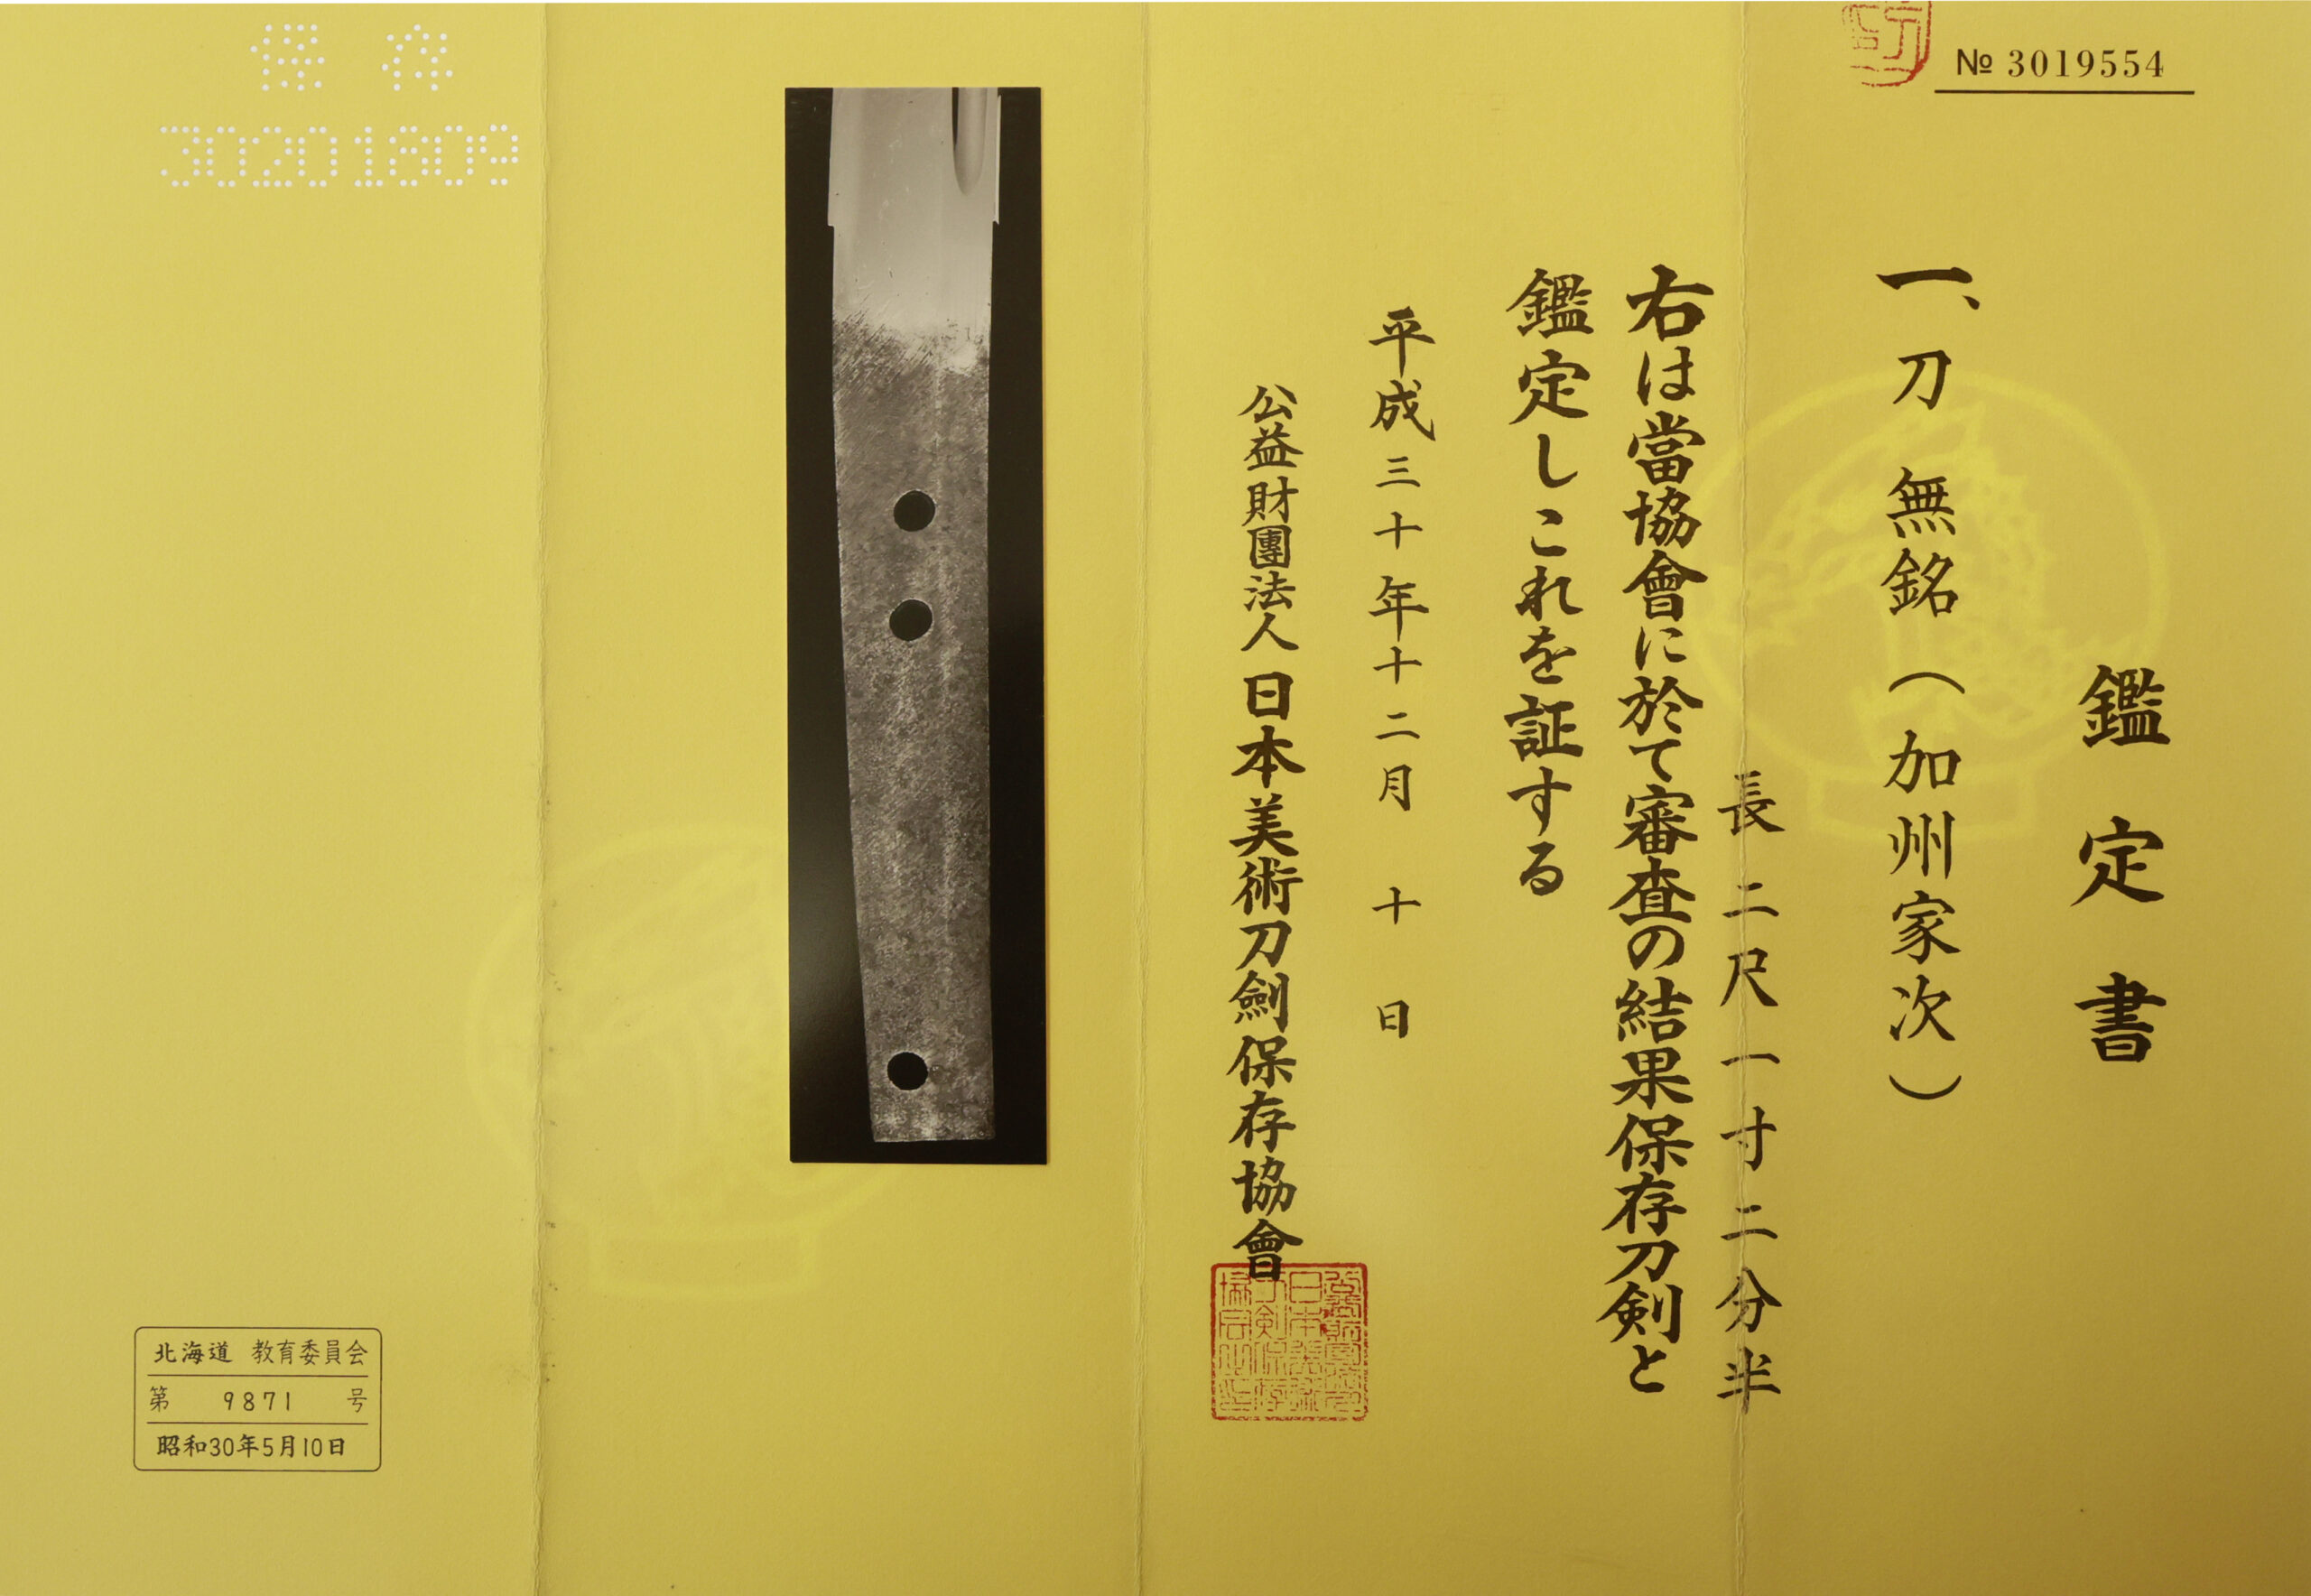 № 3019554
鑑定書
一、刀 無銘(加州家次)
長 二尺一寸二分半
右は當協會に於て審査の結果保存刀剣と
鑑定しこれを証する
平成三十年十二月 十 日
公益財團法人 日本美術刀劍保存協會
保存
30201809
北海道 教育委員会
第 9871 号
昭和30年5月10日